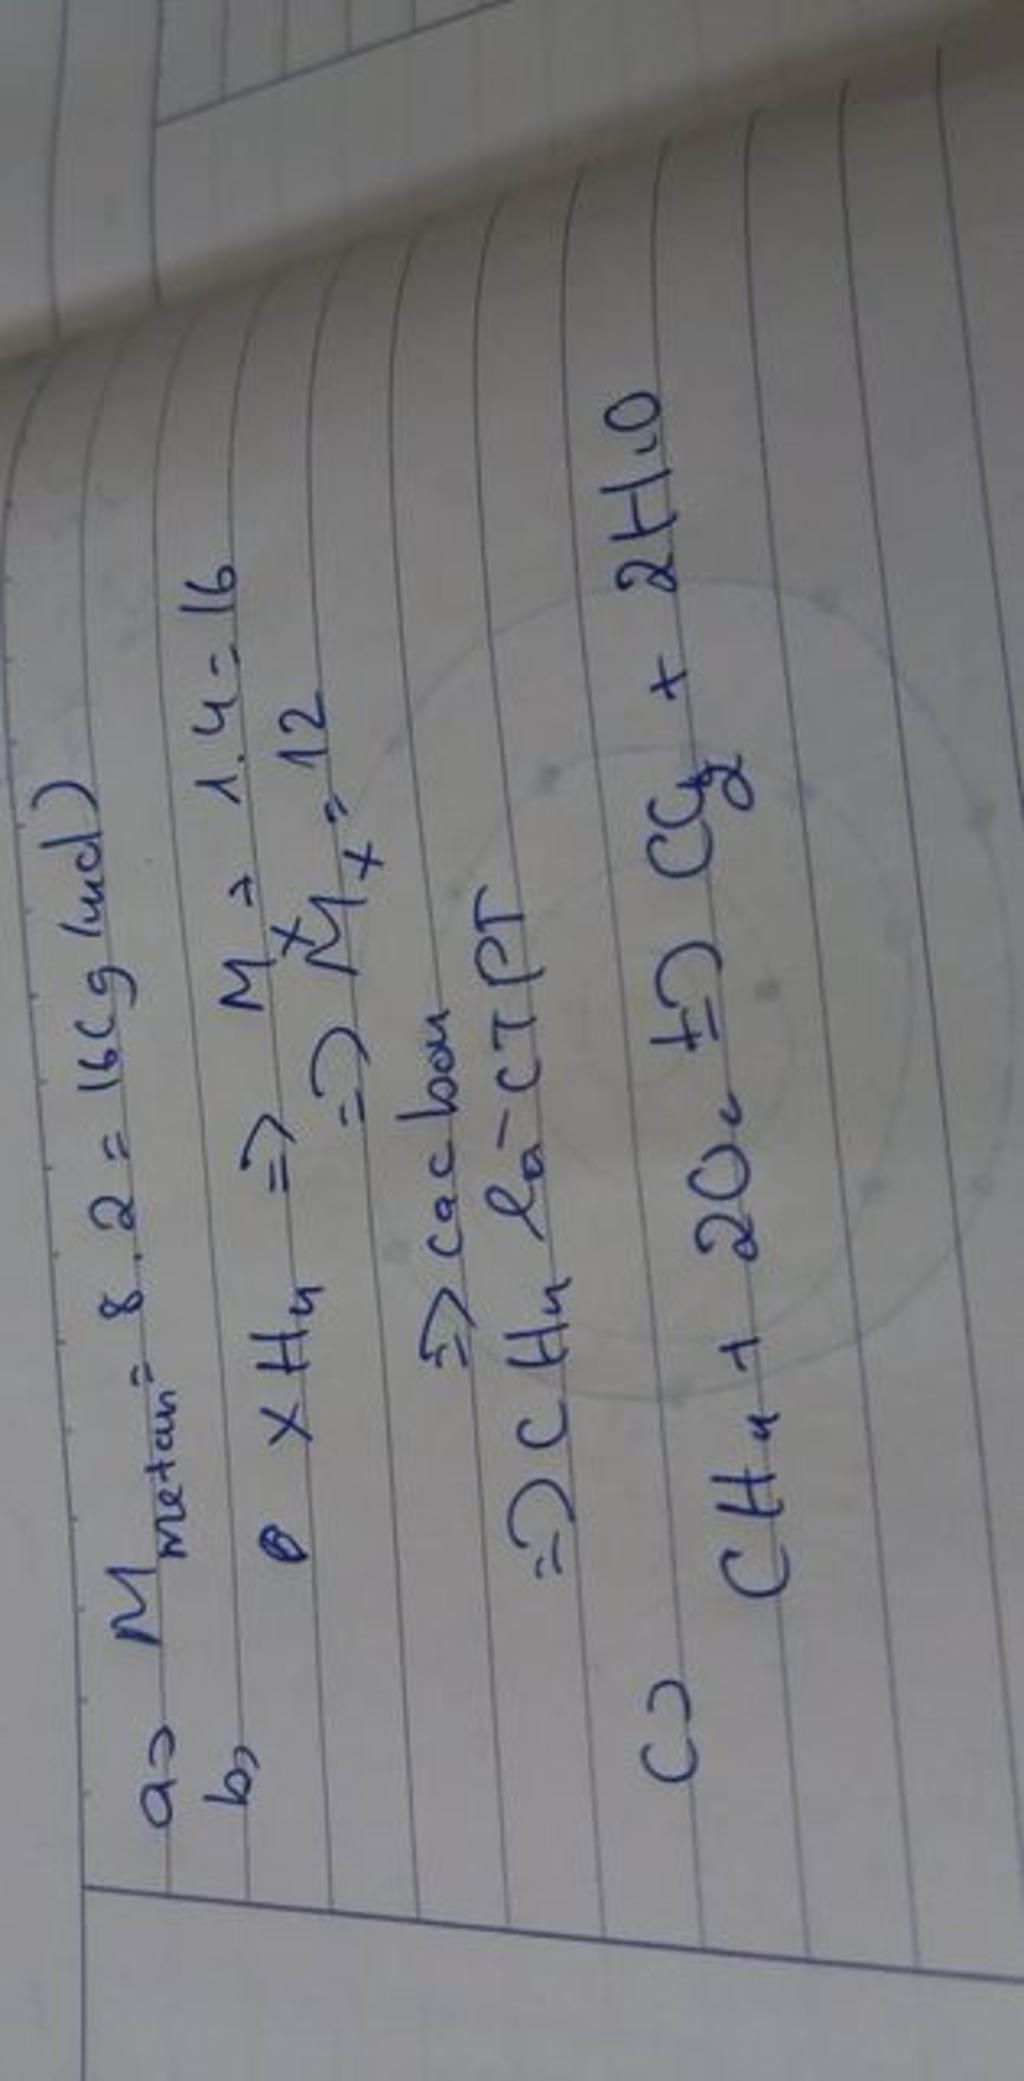 a) M metan = 8.2 = 16 (g/mol)
b) XH4 => Mx + 1.4 = 16
=> Mx = 12
=> cacbon
=> CH4 là CTPT
c)
CH4 + 2O2 t=> CO2 + 2H2O